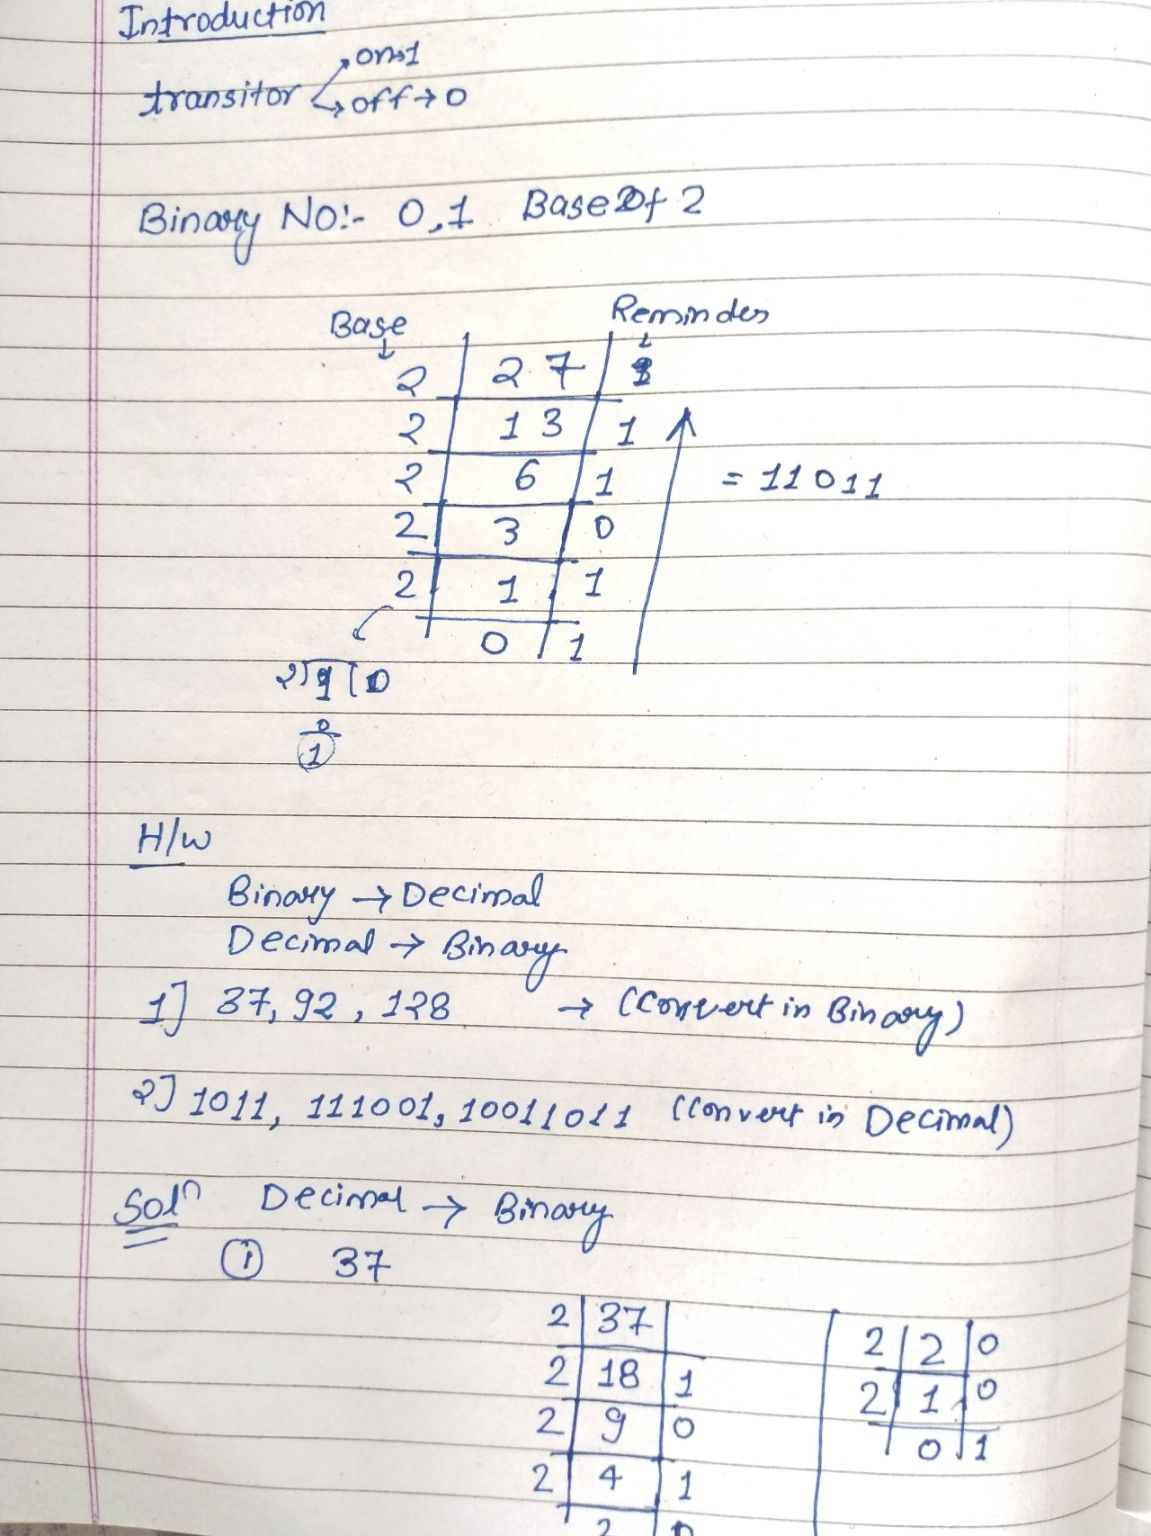 Introduction
on→1
transitor
off→0
Binary NO:- 0,1 Base Of 2
Base Reminder
2 27
2 13 1
2 6 1
= 11011
2 3 0
2 1 1
0 1
2
0
1
H/W
Binary → Decimal
Decimal → Binary
1] 37, 92, 128 → (Convert in Binary)
2] 1011, 111001, 10011011 (Convert in Decimal)
Solⁿ Decimal → Binary
① 37
2 37
2 18 1
2 9 0
2 4 1
2 0
2 2 0
2 1 0
0 1